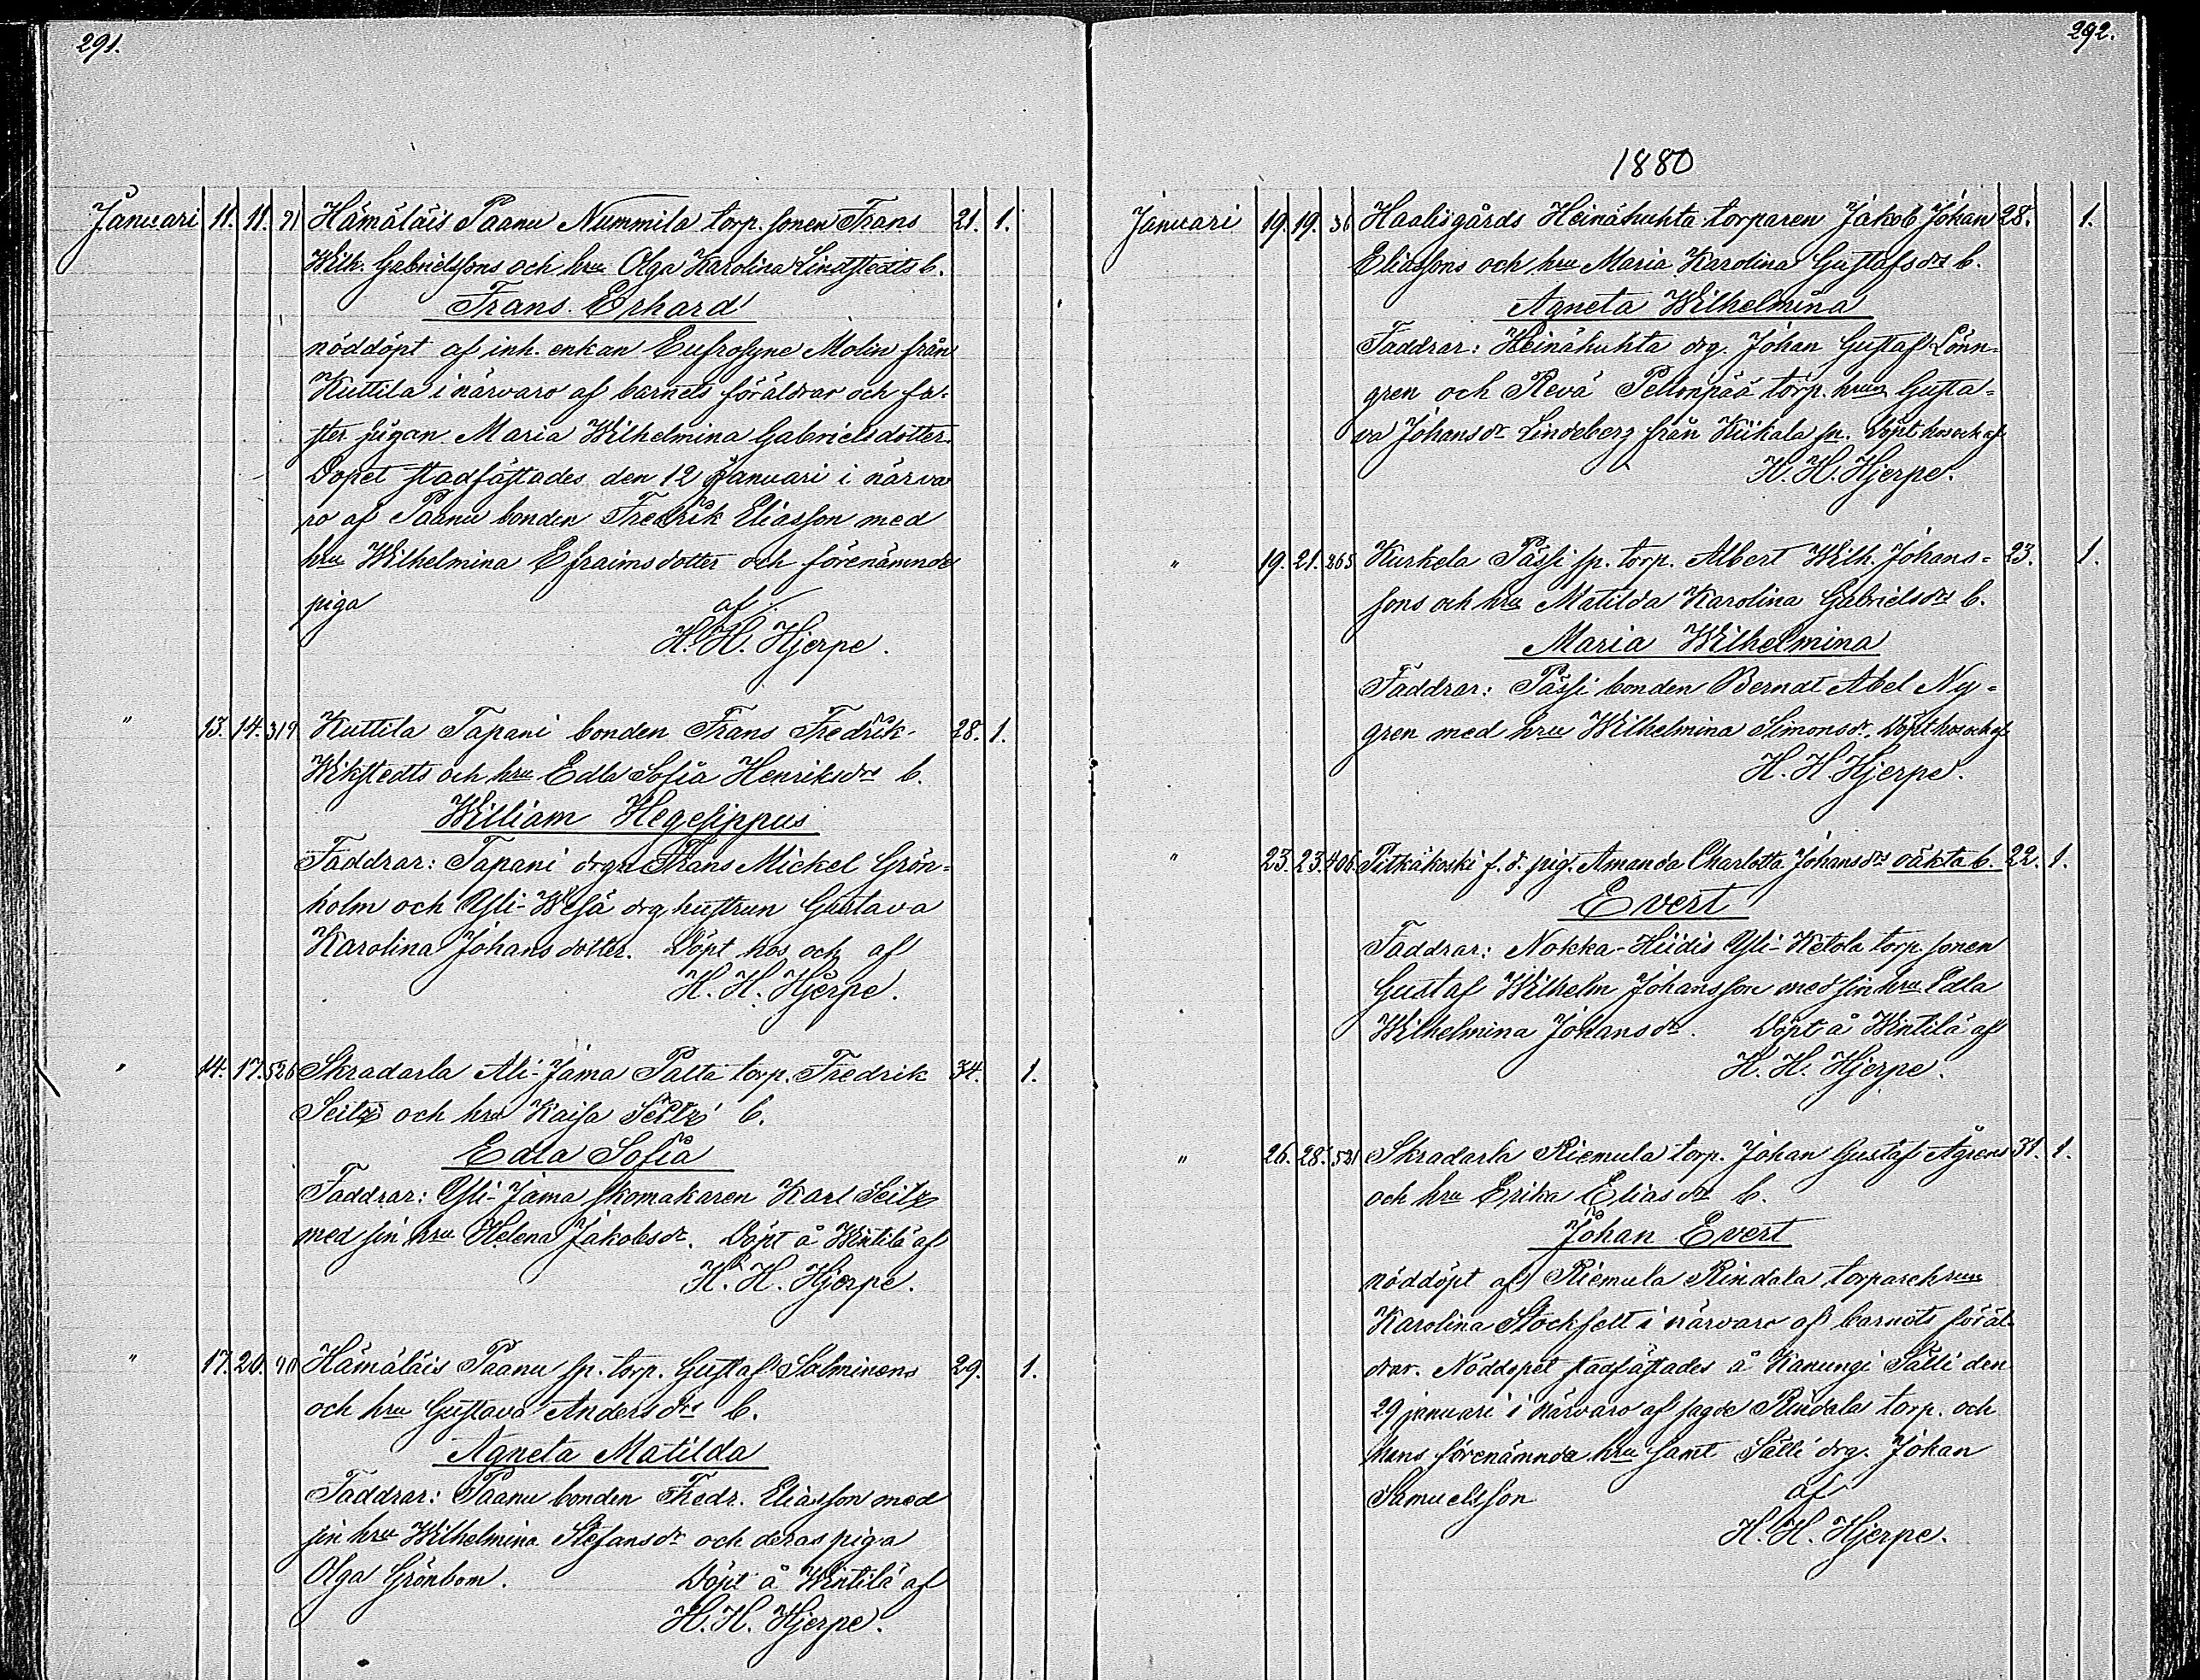 291.
Januari 11. 11. 91 Hämäläis Paanu Nummila torp. sonen Frans 21. 1.
Wilh. Gabrielssons och hru Olga Karolina Lindstedts b.
Frans Erhard
nöddöpt af inh. enkan Eufrosyne Molin från
Kuttila i närvaro af barnets föräldrar och fa-
ster pigan Maria Wilhelmina Gabrielsdotter.
Dopet stadfästades den 12 Januari i närva
ro af Paanu bonden Fredrik Eliasson med
hru Wilhelmina Efraimsdotter och förenämnde
piga af
H. H. Hjerpe.
" 13. 14. 319 Kuttila Tapani bonden Frans Fredrik 28. 1.
Wikstedts och hru Edla Sofia Henriksdrs b.
William Hegesippus
Faddrar: Tapani drgn Frans Mickel Grön-
holm och Yli-Wesä drg hustrun Gustava
Karolina Johansdotter. Döpt hos och af
H. H. Hjerpe.
" 14. 17. 526 Skradarla Ali-Jama Palta torp. Fredrik 34. 1.
Seitz och hru Kaisa Seitz' b.
Edla Sofia
Faddrar: Yli-Jama skomakaren Karl Seitz
med sin hru Helena Jakobsdr. Döpt å Wintilä af
H. H. Hjerpe.
" 17. 20. 90 Hämäläis Paanu sp. torp. Gustaf Salminens 29. 1.
och hru Gustava Andersdrs b.
Agneta Matilda
Faddrar: Paanu bonden Fredr. Eliasson med
sin hru Wilhelmina Stefansdr och deras piga
Olga Grönbom. Döpt å Wintilä af
H. H. Hjerpe.
292.
1880
Januari 19. 19. 36 Haalisgårds Heinähuhta torparen Jakob Johan 28. 1.
Eliassons och hru Maria Karolina Gustafsdrs b.
Agneta Wilhelmina
Faddrar: Heinähuhta drg. Johan Gustaf Lönn-
gren och Revä Peltonpää torp. hrun Gusta-
va Johansdr Lindeberg från Kiikala sn. Döpt hos och af
H. H. Hjerpe.
" 19. 21. 365 Kurkela Pässi sp. torp. Albert Wilh. Johans- 23. 1.
sons och hru Matilda Karolina Gabrielsdrs b.
Maria Wilhelmina
Faddrar: Pässi bonden Berndt Abel Ny-
gren med hru Wilhelmina Simonsdr. Döpt hos och af
H. H. Hjerpe.
" 23. 23. 406. Pitkäkoski f. d. pig. Amanda Charlotta Johansdrs oäkta b. 22. 1.
Evert
Faddrar: Nokka-Hiidis Yli-Ketola torp. sonen
Gustaf Wilhelm Johansson med sin hru Edla
Wilhelmina Johansdr. Döpt å Wintilä af
H. H. Hjerpe.
" 26. 28. 521 Skradarla Riemula torp. Johan Gustaf Ågrens 31. 1.
och hru Erika Eliasdrs b.
Johan Evert
nöddöpt af Riemula Rindala torparehrun
Karolina Stockfelt i närvaro af barnets föräl-
drar. Nöddopet stadfästades å Kanungi Sälli den
29 januari i närvaro af sagde Rindala torp. och
hans förenämnda hru samt Sälli drg. Johan
Samuelsson af
H. H. Hjerpe.